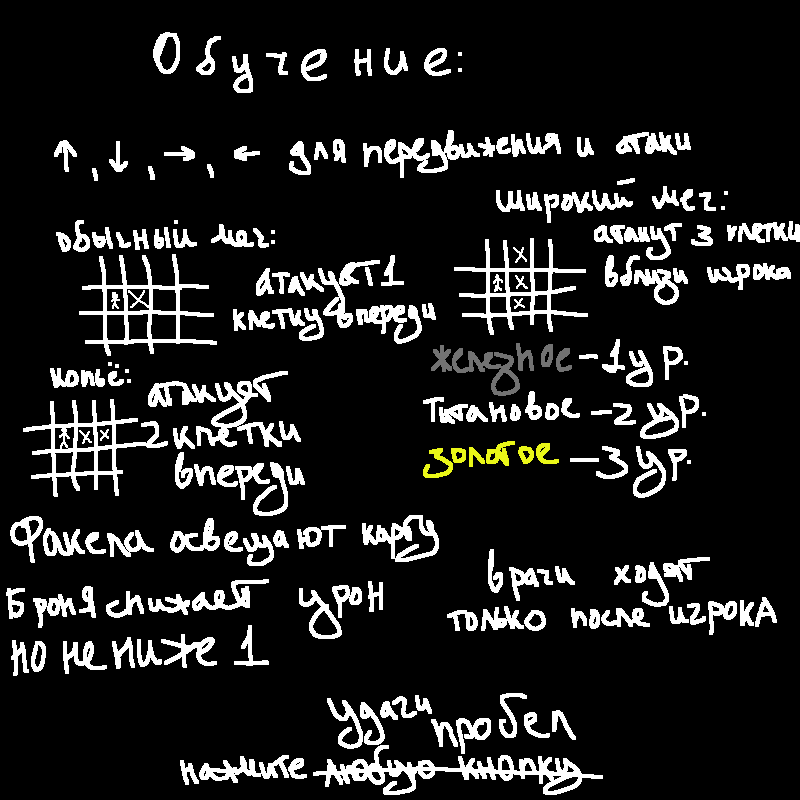 Обучение:
↑, ↓, →, ← для передвижения и атаки
обычный меч:
атакует 1
клетку впереди
широкий меч:
атакут 3 клетки
вблизи игрока
копьё:
атакует
2 клетки
впереди
железное - 1 ур.
титановое - 2 ур.
золотое - 3 ур.
Факела освещают карту
Броня снижает урон
но не ниже 1
враги ходят
только после игрока
удачи
пробел
нажмите любую кнопку